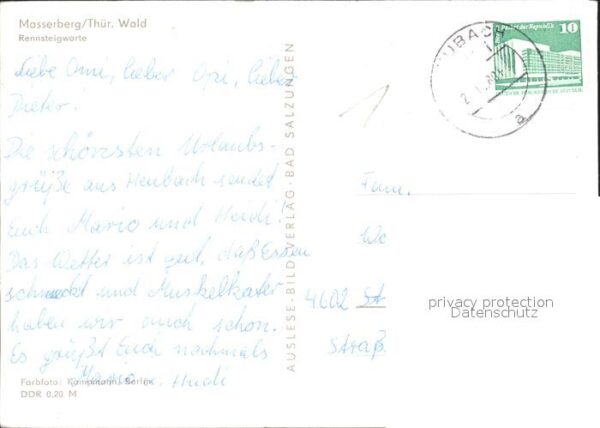 Masserberg/Thür. Wald
Rennsteigwarte
Liebe Omi, lieber Opi, lieber
Dieter.
Die schönsten Urlaubs-
grüße aus Heubach sendet
Euch Mario und Heidi!
Das Wetter ist gut, daß Essen
schmeckt und Muskelkater
haben wir auch schon.
Es grüßt Euch nochmals
Mario u. Heidi
Farbfoto: Kampmann, Berlin
DDR 0,20 M
AUSLESE-BILD-VERLAG · BAD SALZUNGEN
UBACH
a
Palast der Republik
10
Fam.
4602 St
Straß
privacy protection
Datenschutz